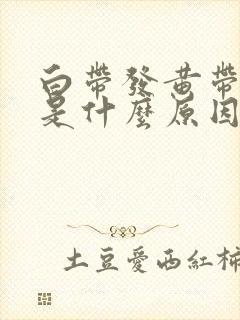 白帶發黃帶
是什麼原因
土豆愛西紅柿